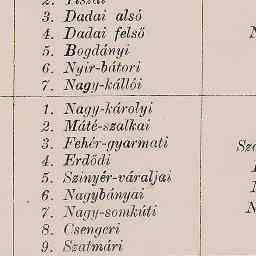 2. Tiszai
3. Dadai alsó
4. Dadai felső
5. Bogdányi
6. Nyir-bátori
7. Nagy-kállói
1. Nagy-károlyi
2. Máté-szalkai
3. Fehér-gyarmati
4. Erdődi
5. Szinyér-váraljai
6. Nagybányai
7. Nagy-somkúti
8. Csengeri
9. Szatmári